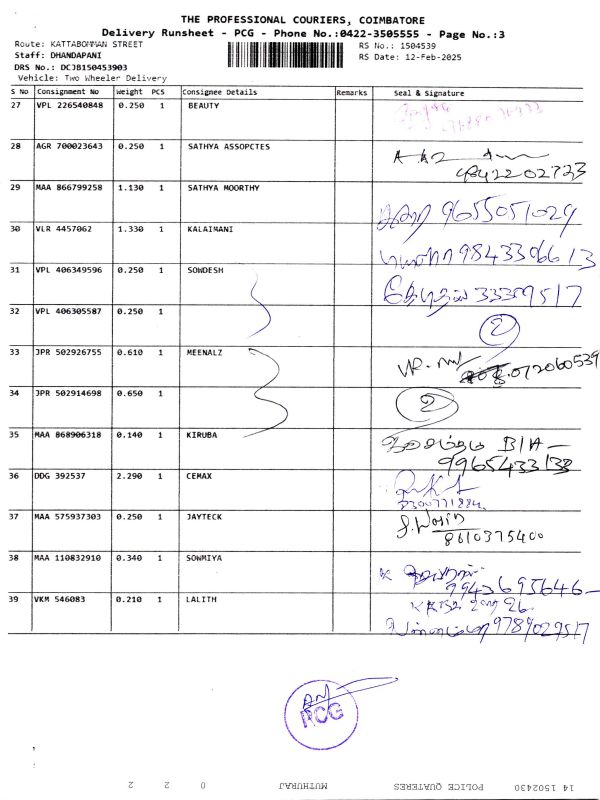 THE PROFESSIONAL COURIERS, COIMBATORE
Delivery Runsheet - PCG - Phone No.:0422-3505555 - Page No.:3
Route: KATTABOMMAN STREET
RS No.: 1504539
Staff: DHANDAPANI
RS Date: 12-Feb-2025
DRS No.: DCJB150453903
Vehicle: Two Wheeler Delivery
S No Consignment No Weight PCS Consignee Details Remarks Seal & Signature
27 VPL 226540848 0.250 1 BEAUTY
28 AGR 700023643 0.250 1 SATHYA ASSOPCTES
29 MAA 866799258 1.130 1 SATHYA MOORTHY
9655051029
30 VLR 4457062 1.330 1 KALAIMANI
9843306613
31 VPL 406349596 0.250 1 SOWDESH
33359517
32 VPL 406305587 0.250 1
2
33 JPR 502926755 0.610 1 MEENALZ
34 JPR 502914698 0.650 1
2
35 MAA 868906318 0.140 1 KIRUBA
36 DDG 392537 2.290 1 CEMAX
37 MAA 575937303 0.250 1 JAYTECK
8610375400
38 MAA 110832910 0.340 1 SOWMIYA
9943695646
39 VKM 546083 0.210 1 LALITH
9789029517
PCG
14 1502430 POLICE QUATERES MUTHURAJ 0 2 2